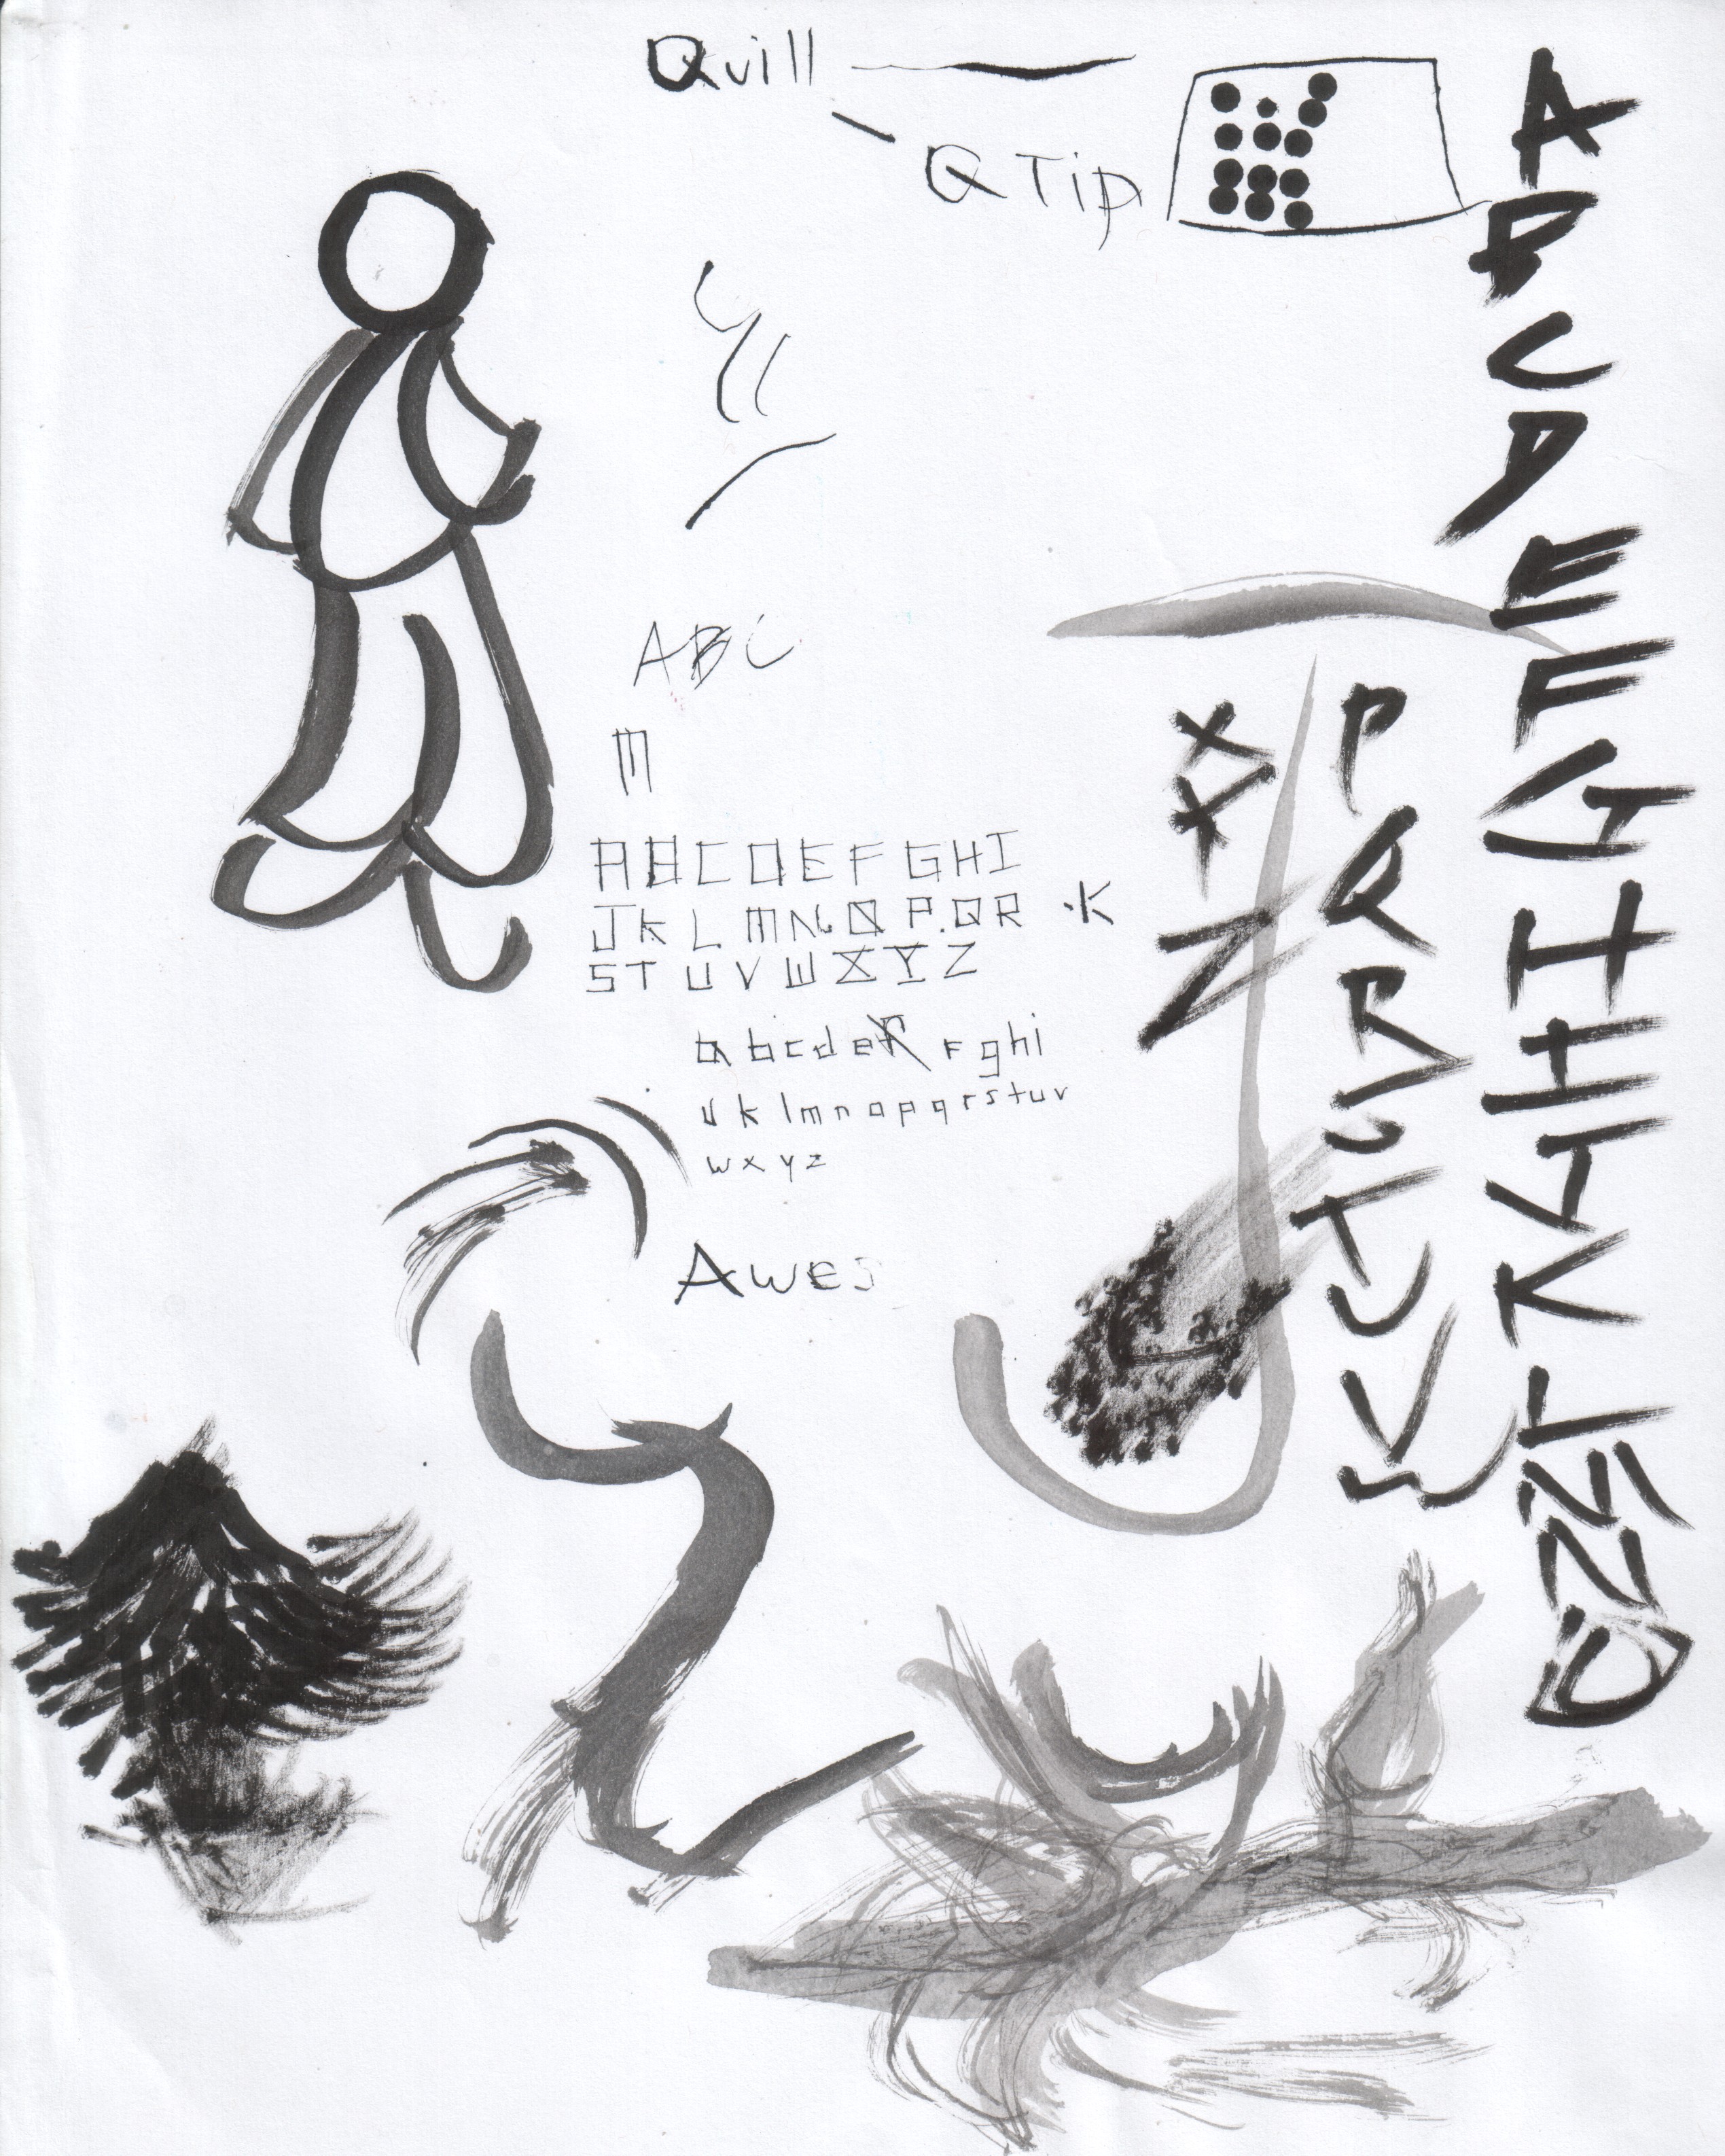 Quill
Q Tip
ABC
m
ABCDEFGHI
JKLMNOPQR K
STUVWXYZ
abcde fghi
jklmnopqrstuv
wxyz
Awes
A
B
C
D
E
F
G
H
I
J
K
L
M
N
O
P
Q
R
S
T
U
V
W
X
Y
Z